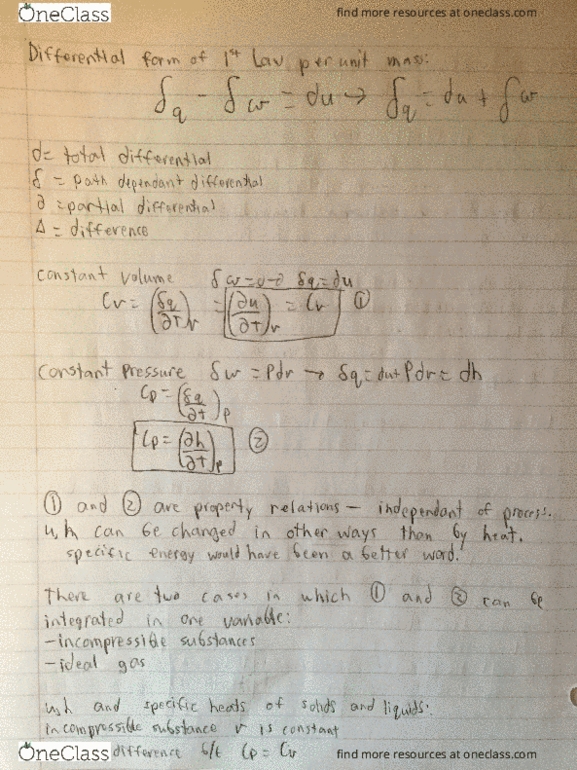 OneClass
find more resources at oneclass.com
Differential form of 1st Law per unit mass:
δq - δw = du → δq = du + δw
d = total differential
δ = path dependant differential
∂ = partial differential
Δ = difference
constant volume δw=0→ δq=du
Cv = (δq/∂T)v = (∂u/∂T)v = Cv ①
Constant Pressure δw = Pdv → δq = du+Pdv = dh
Cp = (δq/∂t)p
Cp = (∂h/∂T)p ②
① and ② are property relations – independant of process.
u, h can be changed in other ways than by heat.
specific energy would have been a better word.
There are two cases in which ① and ② can be
integrated in one variable:
-incompressible substances
-ideal gas
u,h and specific heats of solids and liquids:
incompressible substance v is constant
difference b/t Cp = Cv
OneClass
find more resources at oneclass.com